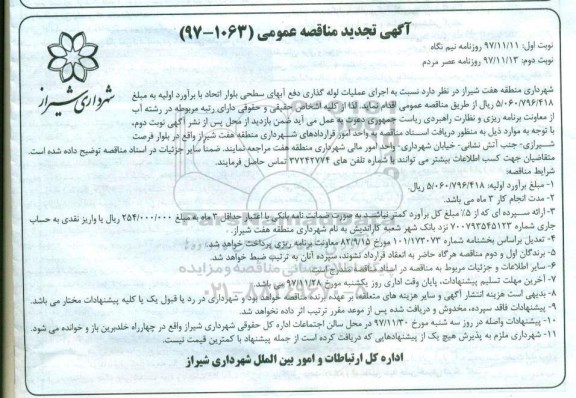 آگهی تجدید مناقصه عمومی (۱۰۶۳-۹۷)
نوبت اول: ۹۷/۱۱/۱۱ روزنامه نیم نگاه
نوبت دوم: ۹۷/۱۱/۱۳ روزنامه عصر مردم
شهرداری شیراز
شهرداری منطقه هفت شیراز در نظر دارد نسبت به اجرای عملیات لوله گذاری دفع آبهای سطحی بلوار اتحاد با برآورد اولیه به مبلغ
۵/۰۶۰/۷۹۶/۴۱۸ ریال از طریق مناقصه عمومی اقدام نماید. لذا از کلیه اشخاص حقیقی و حقوقی دارای رتبه مربوطه در رشته آب
از معاونت برنامه ریزی و نظارت راهبردی ریاست جمهوری دعوت به عمل می آید ضمن بازدید از محل پس از نشر آگهی نوبت دوم،
با توجه به موارد ذیل به منظور دریافت اسناد مناقصه به واحد امور قراردادهای شهرداری منطقه هفت شیراز واقع در بلوار فرصت
شیرازی- جنب آتش نشانی- خیابان شهرداری- واحد امور مالی شهرداری منطقه هفت مراجعه نمایند. ضمناً سایر جزئیات در اسناد مناقصه توضیح داده شده است.
متقاضیان جهت کسب اطلاعات بیشتر می توانند با شماره تلفن های ۳۷۲۴۲۷۷۴ تماس حاصل فرمایند.
شرایط مناقصه:
۱- مبلغ برآورد اولیه: ۵/۰۶۰/۷۹۶/۴۱۸ ریال.
۲- مدت انجام کار ۳ ماه می باشد.
۳-ارائه سپرده ای که از ۵٪ مبلغ کل برآورد کمتر نباشد به صورت ضمانت نامه بانکی با اعتبار حداقل ۳ ماه به مبلغ ۲۵۴/۰۰۰/۰۰۰ ریال یا واریز نقدی به حساب
جاری شماره ۷۰۰۷۹۳۵۴۵۱۲۳ نزد بانک شهر شعبه کاراندیش به نام شهرداری منطقه هفت شیراز.
۴- تعدیل براساس بخشنامه شماره ۱۰۱/۱۷۳۰۷۳ مورخ ۸۲/۹/۱۵ معاونت برنامه ریزی پرداخت خواهد شد.
۵- برندگان اول و دوم مناقصه هرگاه حاضر به انعقاد قرارداد نشوند، سپرده آنان به ترتیب ضبط خواهد شد.
۶- سایر اطلاعات و جزئیات مربوط به مناقصه در اسناد مناقصه مندرج است.
۷- آخرین مهلت تسلیم پیشنهادات، پایان وقت اداری روز یکشنبه مورخ ۹۷/۱۱/۲۸ می باشد.
۸- بدیهی است هزینه انتشار آگهی و سایر هزینه های متعلقه بر عهده برنده مناقصه خواهد بود و شهرداری در رد یا قبول یک یا کلیه پیشنهادات مختار می باشد.
۹- پیشنهادات فاقد سپرده، مخدوش و دریافت شده پس از موعد مقرر ترتیب اثر داده نخواهد شد.
۱۰- پیشنهادات واصله در روز سه شنبه مورخ ۹۷/۱۱/۳۰ در محل سالن اجتماعات اداره کل حقوقی شهرداری شیراز واقع در چهارراه خلدبرین باز و خوانده می شود.
۱۱- شهرداری ملزم به پذیرش هیچ یک از پیشنهادهایی که دریافت کرده است از جمله پیشنهاد با کمترین قیمت نیست.
اداره کل ارتباطات و امور بین الملل شهرداری شیراز